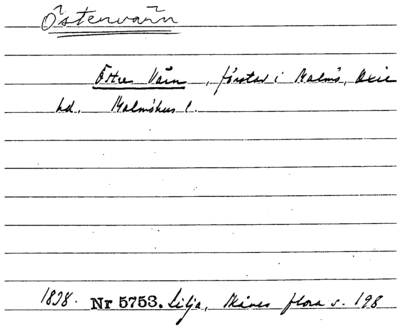 Östervärn
Östra Värn, förstad i Malmö, Oxie
hd, Malmöhus l.
1838. Nr 5753. Lilja, Skånes flora s. 198